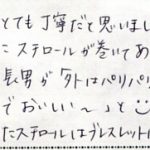 とても丁寧だと思いまし
にステロールが巻いてあ
長男が「外はパリパリ
でおいしい〜」と☺
たステロールはブレスレットに